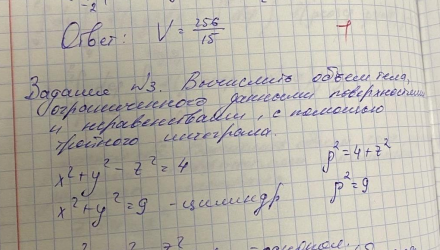 -2
Ответ: V = 256/15
Задание №3. Вычислить объем тела,
ограниченного данными поверхностями
и неравенствами, с помощью
тройного интеграла.
x²+y²-z²=4 ρ²=4+z²
x²+y²=9 - цилиндр ρ²=9